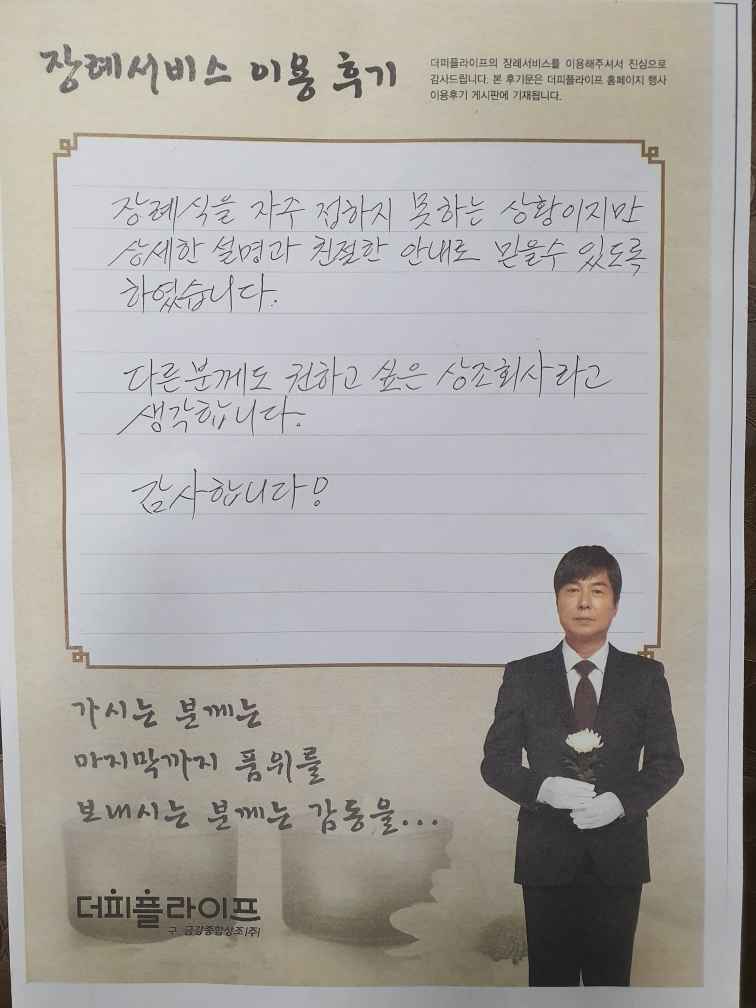 장례서비스 이용 후기
더피플라이프의 장례서비스를 이용해주셔서 진심으로
감사드립니다. 본 후기문은 더피플라이프 홈페이지 행사
이용후기 게시판에 기재됩니다.
장례식을 자주 접하지 못하는 상황이지만
상세한 설명과 친절한 안내로 믿을수 있도록
하였습니다.
다른분께도 권하고 싶은 상조회사라고
생각합니다.
감사합니다!
가시는 분께는
마지막까지 품위를
보내시는 분께는 감동을...
더피플라이프
구. 금강종합상조(주)